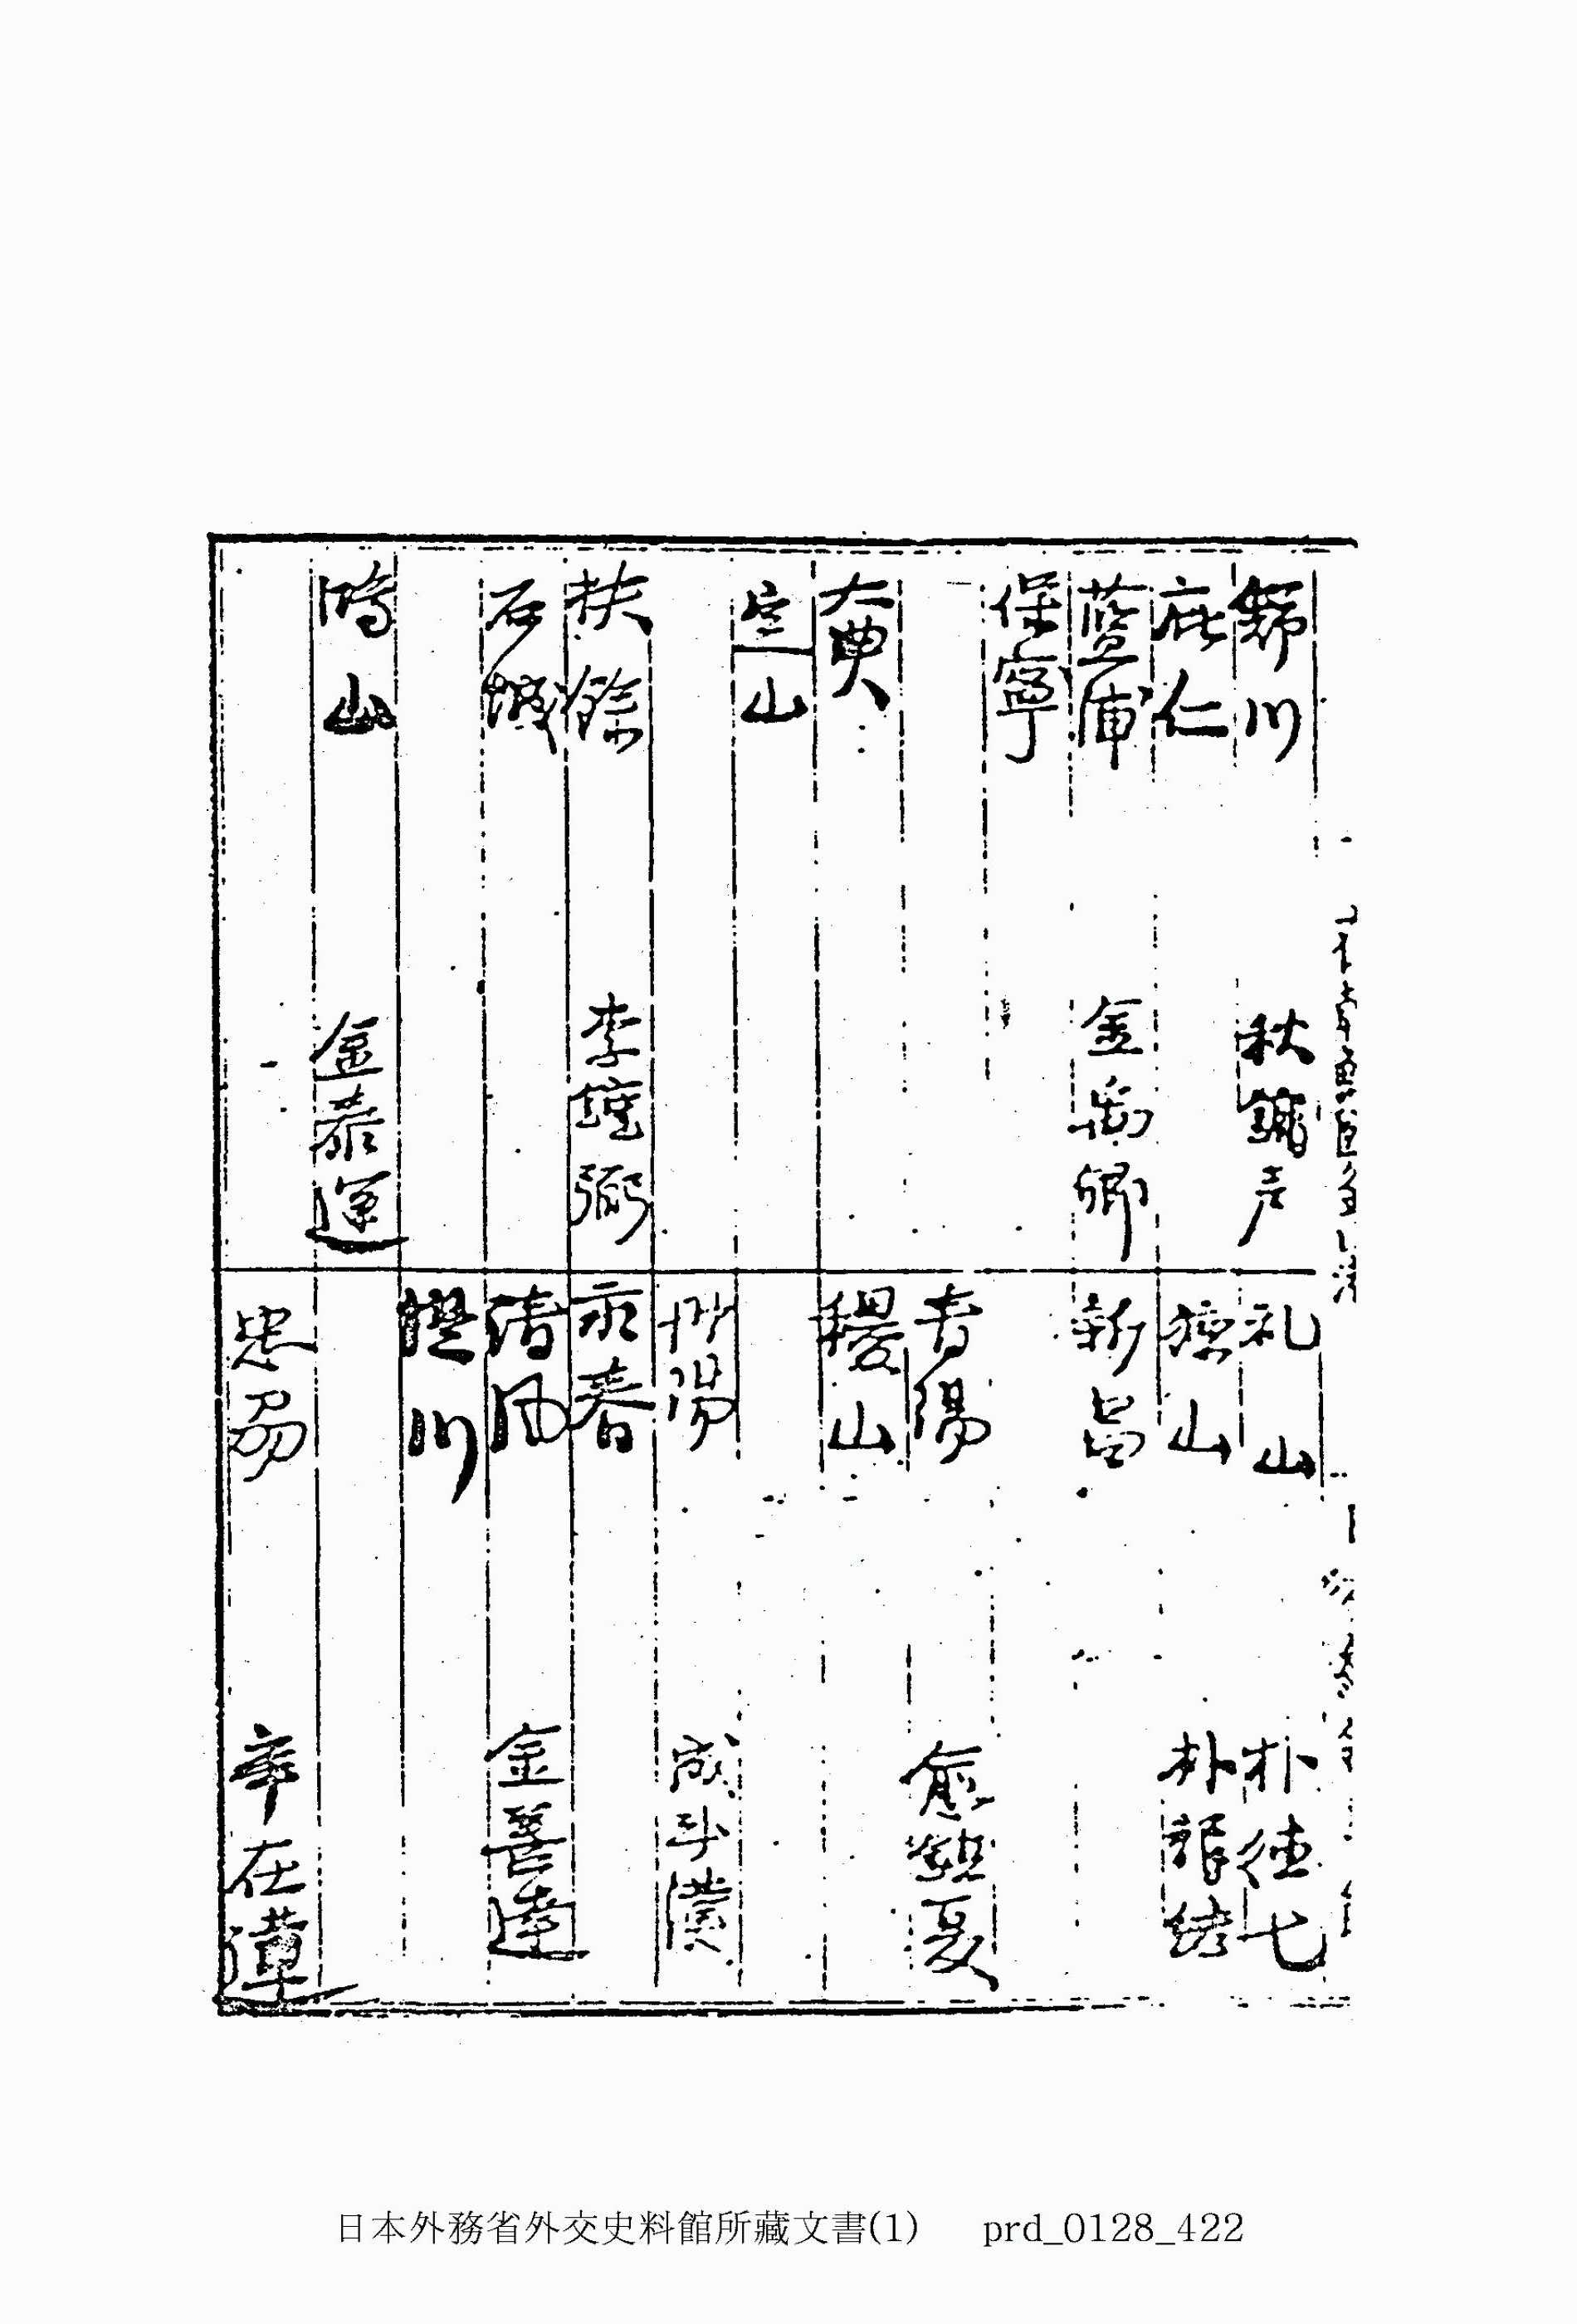 舒川 秋
庇仁
藍 金禹卿
保寧
大興
定山
扶餘 李弼
石城
鴻山 金泰運
礼山 朴徳七
徳山 朴龍緒
新昌
青陽 夏
稷山
丹陽 成斗漢
永春
清風 金善達
醴川
忠州 辛在蓮
日本外務省外交史料館所藏文書(1) prd_0128_422